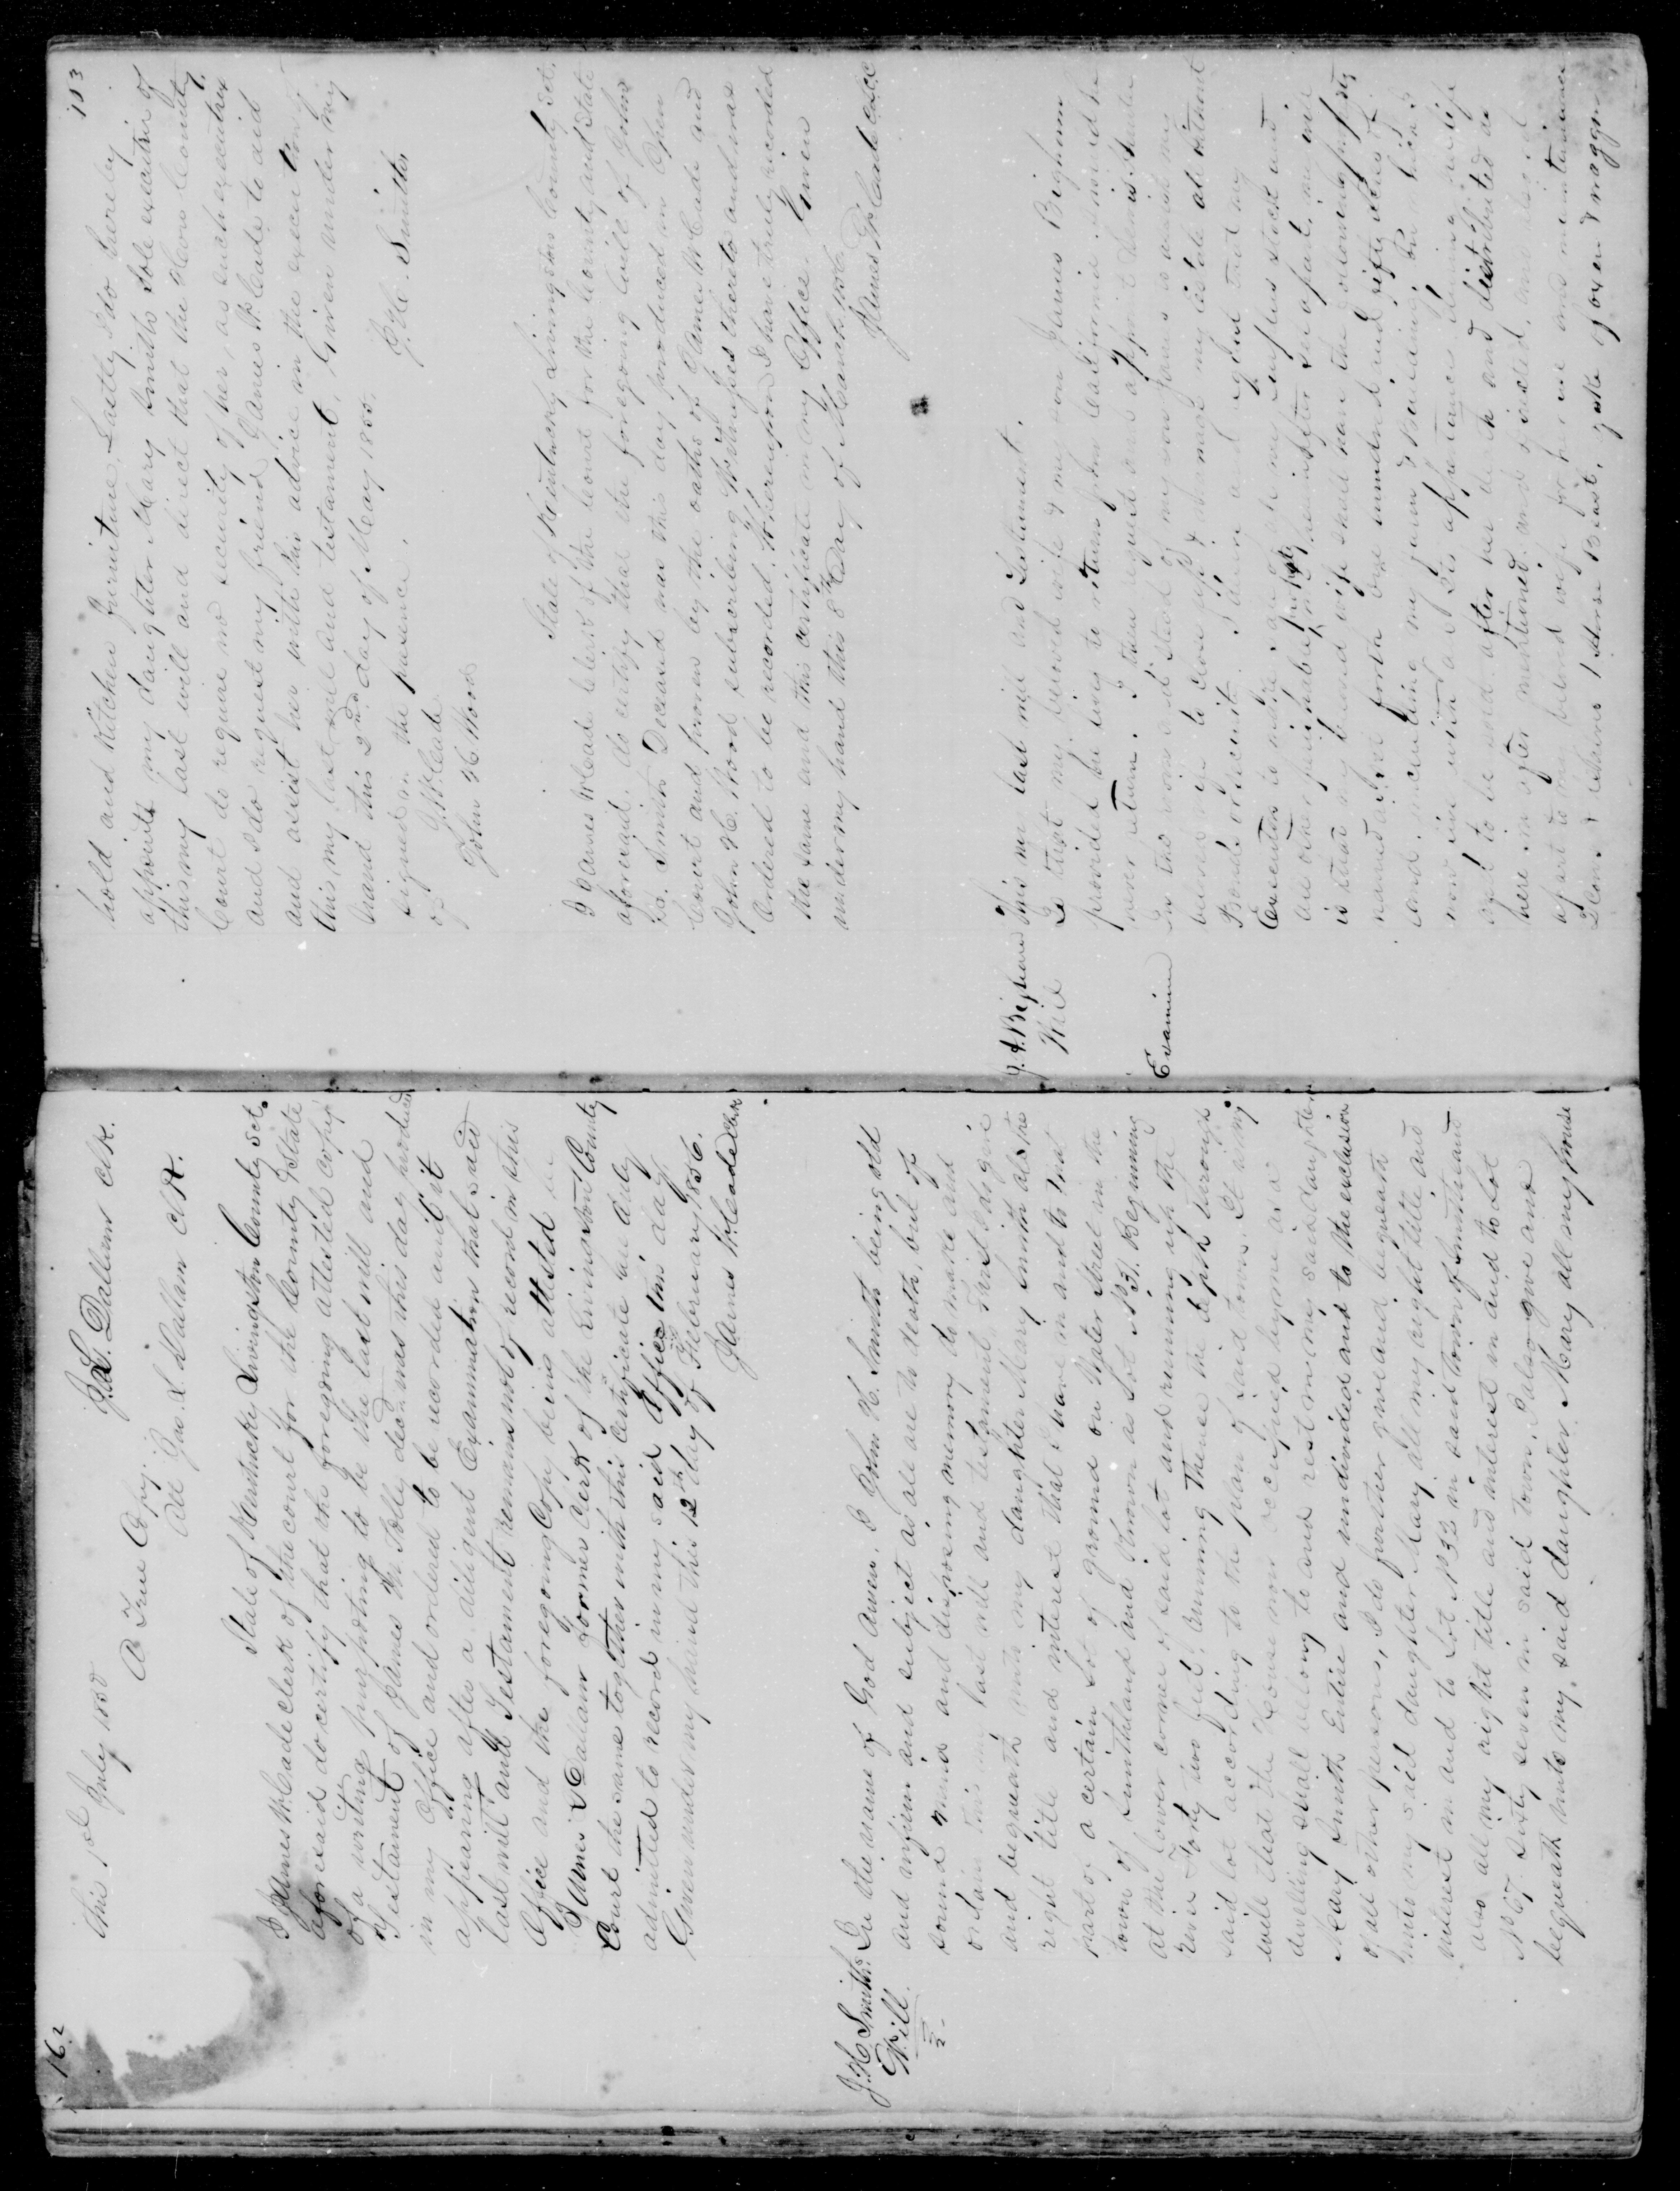 162
this 1st July 1850
J. L. Dallam Clk.
A True Copy.
Att Jas. L. Dallam Clk.
State of Kentucky Livingston County Sct.
I James W Cade clerk of the court for the County & State
aforesaid do certify that the foregoing attested copy
of a writing purporting to be the last will and
Testament of James M Jolly decd was this day produced
in my office and ordered to be recorded and it
appearing after a diligent Examination that said
last will and Testament remains not of record in this
Office and the foregoing Copy being attested by
James L Dallam former Clerk of the Livingston County
Court the same together with this Certificate are duly
admitted to record in my said office this day
Given under my hand this 12th day of February 1856.
James W Cade Clerk
J. H. Smith's
Will.
In the name of God Amen. I John H. Smith being old
and infirm and subject as all are to death, but of
sound mind and disposing memory do make and
ordain this my last will and testament, First I do give
and bequeath unto my daughter Mary Smith all the
right title and interest that I have in and to that
part of a certain Lot of ground on Water Street in the
town of Smithland and known as Lot No 3. Beginning
at the lower corner of said lot and running up the
river Forty two feet, running Thence the depth through
said lot according to the plan of said town. It is my
will that the House now occupied by me as a
dwelling shall belong to and rest in my said daughter
Mary Smith Entire and undivided and to the exclusion
of all other persons, I do further give and bequeath
unto my said daughter Mary all my right title and
interest in and to Lot No 32 in said town of Smithland
also all my right title and interest in and to Lot
No 67 Sixty seven in said town, I also give and
bequeath unto my said daughter Mary all my house
163
hold and Kitchen Furniture. Lastly I do hereby
appoint my daughter Mary Smith sole executrix of
this my last will and direct that the Clown County
Court do require no security of her, as such executrix
and I do request my friend James W Cade to aid
and assist her with his advice in the execution of
this my last will and testament, Given under my
hand this 2nd day of May 1855.
signed in the presence
J. H. Smith
of J W Cade
John H Wood
State of Kentucky Livingston County Sct.
I James W Cade Clerk of the Court for the County and State
aforesaid, do certify that the foregoing Will of John
H. Smith Deceased was this day produced in Open
Court and proven by the oaths of James W Cade and
John H. Wood subscribing Witnesses thereto and was
Ordered to be recorded, Whereupon I have truly recorded
the same and this certificate in my Office. Given
under my hand this 8th Day of March 1856.
James W Cade C.L.C.C
J. A. Bigham
Will
Examined
This my last will and Testament.
I trust my beloved wife & my son James Bigham
provided he lives to return from California. Should he
never return. I then request and appoint
in the room and stead of my son James to assist my
beloved wife to close up & manage my estate all without
Bonds or security. I desire and request that my
Executors to make sale of all my surplus stock and
all other perishable property hereinafter set apart, my will
is that my beloved wife shall have the following property
named as set forth one hundred and fifty acres of
land, including my farm & Buildings on which I
now live with all its appurtenances during her life
and to be sold after her death and distributed as
here in after mentioned and directed, and also set
apart to my beloved wife for her use and maintenance
2 Cows & Calves 1 Horse Beast, yoke of oxen & waggon